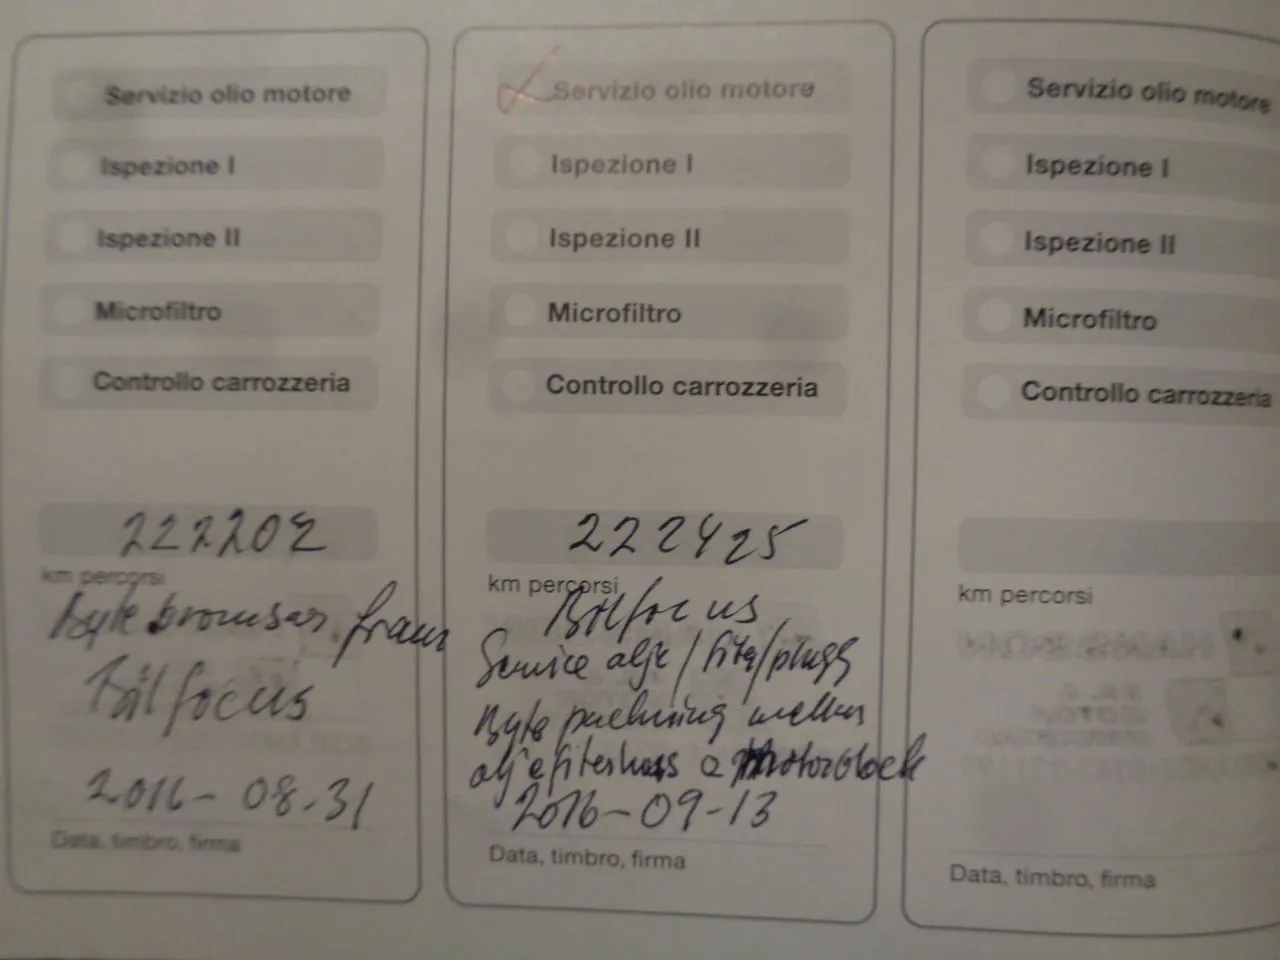 Servizio olio motore
Ispezione I
Ispezione II
Microfiltro
Controllo carrozzeria
222202
km percorsi
Byte bromsar fram
Bilfocus
2016-08-31
Data, timbro, firma
Servizio olio motore
Ispezione I
Ispezione II
Microfiltro
Controllo carrozzeria
222425
km percorsi
Bilfocus
Service olje/filter/plugg
Byte packning mellan
oljefilterhus o motorblock
2016-09-13
Data, timbro, firma
Servizio olio motore
Ispezione I
Ispezione II
Microfiltro
Controllo carrozzeria
km percorsi
Data, timbro, firma